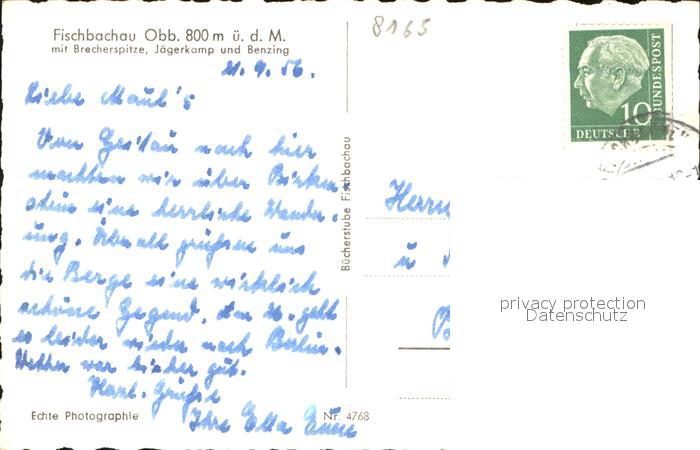 Fischbachau Obb. 800 m ü. d. M.
mit Brecherspitze, Jägerkamp und Benzing
8165
21.9.56.
Liebe Maul's
Von Geitau nach hier
machten wir über Birken
stein eine herrliche Wander-
ung. Überall grüßen uns
die Berge eine wirklich
schöne Gegend, am 24. geht
es leider wieder nach Berlin.
Wetter war bisher gut.
Herzl. Grüße
Ihre Ella
Echte Photographie
Nr. 4768
Bücherstube Fischbachau
Herrn
u
DEUTSCHE
BUNDESPOST
10
privacy protection
Datenschutz